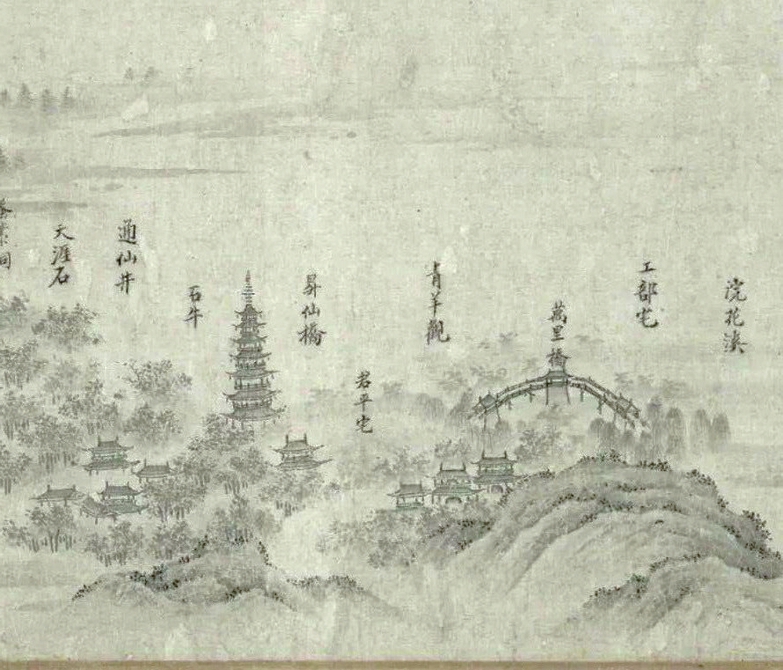 浣花溪
工部宅
萬里橋
青羊觀
君平宅
昇仙橋
石牛
通仙井
天涯石